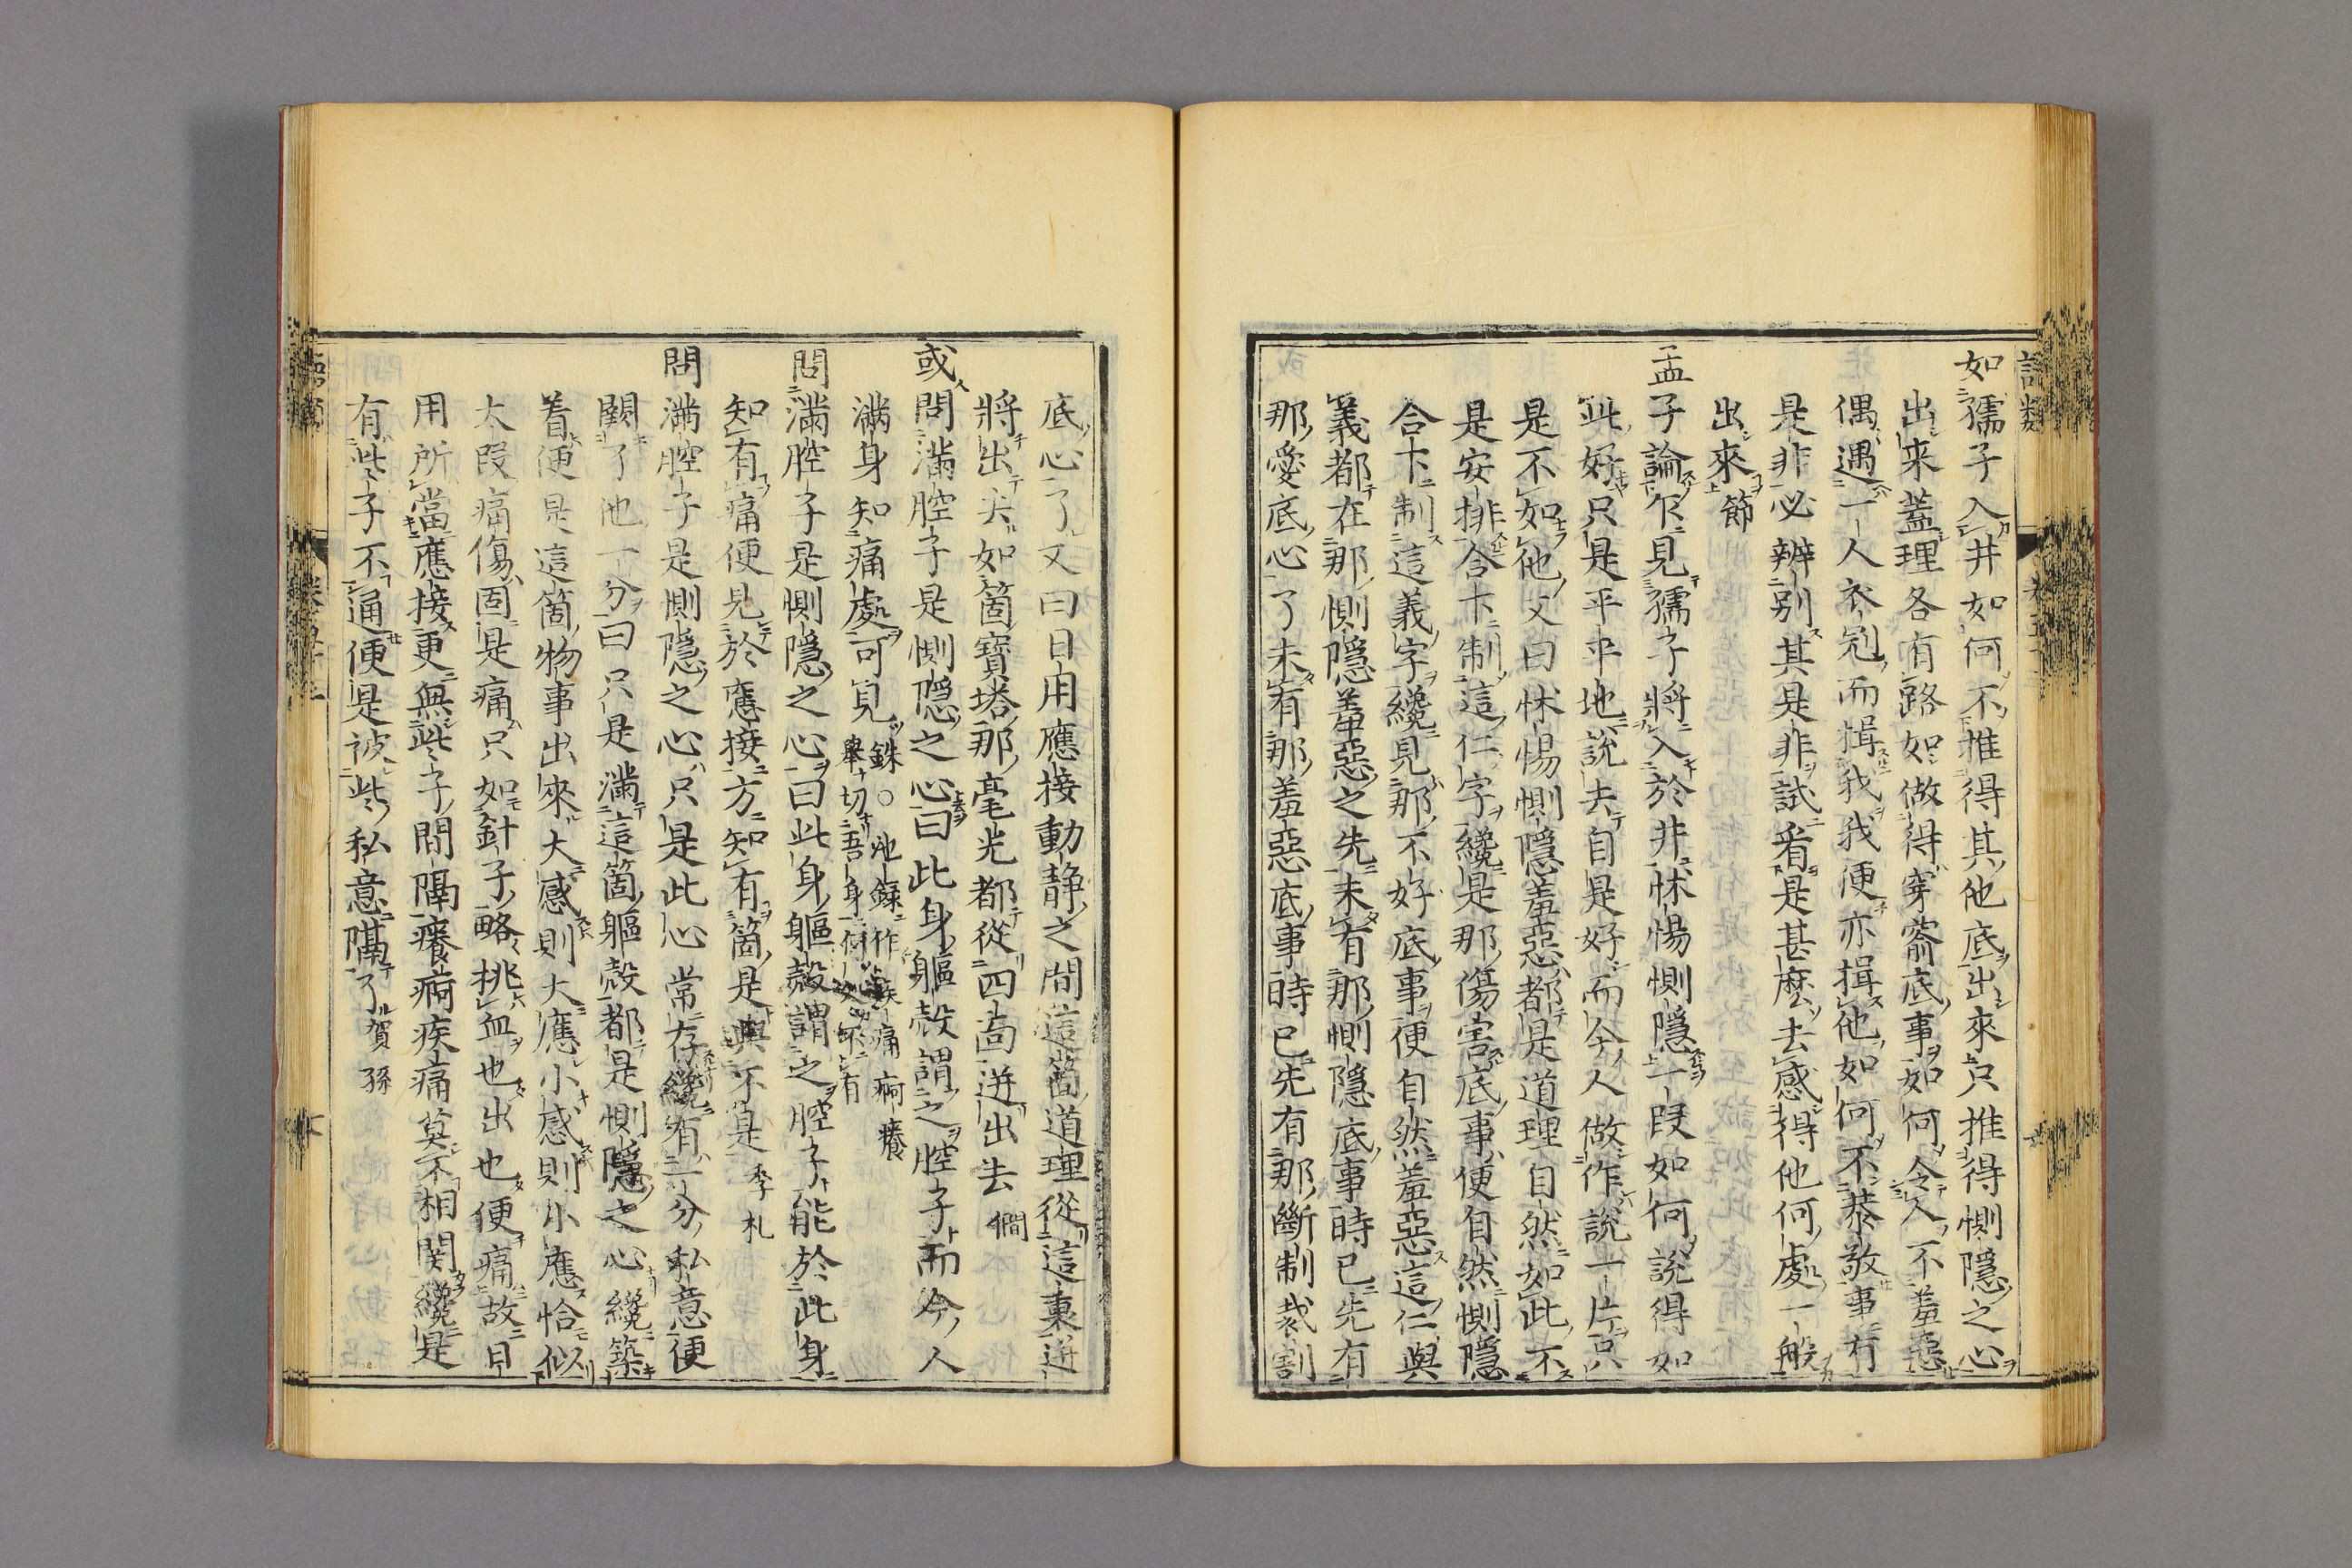 語類
如孺子入井如何不推得其他底出來只推得惻隱之心
出来蓋理各有路如做得穿窬底事如何令人不羞惡
偶遇一人衣冠而揖我我便亦揖他如何不恭敬事有
是非必辨别其是非試看是甚麽去感得他何處一般
出來 節
孟子論乍見孺子將入於井怵惕惻隱一段如何說得如
此好只是平平地說去自是好而今人做作說一片只
是不如他又曰怵惕惻隱羞惡都是道理自然如此不
是安排合下制這仁字纔是那傷害底事便自然惻隱
合下制這義字纔見那不好底事便自然羞惡這仁與
義都在那惻隱羞惡之先未有那惻隱底事時已先有
那愛底心了未有那羞惡底事時已先有那斷制裁割
底心了又曰日用應接動静之間這箇道理從這裏迸
將出去如箇寶塔那毫光都從四面迸出去 僩
或問滿腔子是惻隱之心曰此身軀殼謂之腔子而今人
滿身知痛處可見 銖○池錄作疾痛痾癢
舉切吾身何處不有
問滿腔子是惻隱之心曰此身軀殼謂之腔子能於此身
知有痛便見於應接方知有箇是與不是 季札
問滿腔子是惻隱之心只是此心常存纔有一分私意便
闕了他一分曰只是滿這箇軀殼都是惻隱之心纔築
着便是這箇物事出來大感則大應小感則小應恰似
大段痛傷固是痛只如針子略挑血也出也便痛故日
用所當應接更無些子間隔癢痾疾痛莫不相関纔是
有些子不通便是被些私意隔了 賀孫